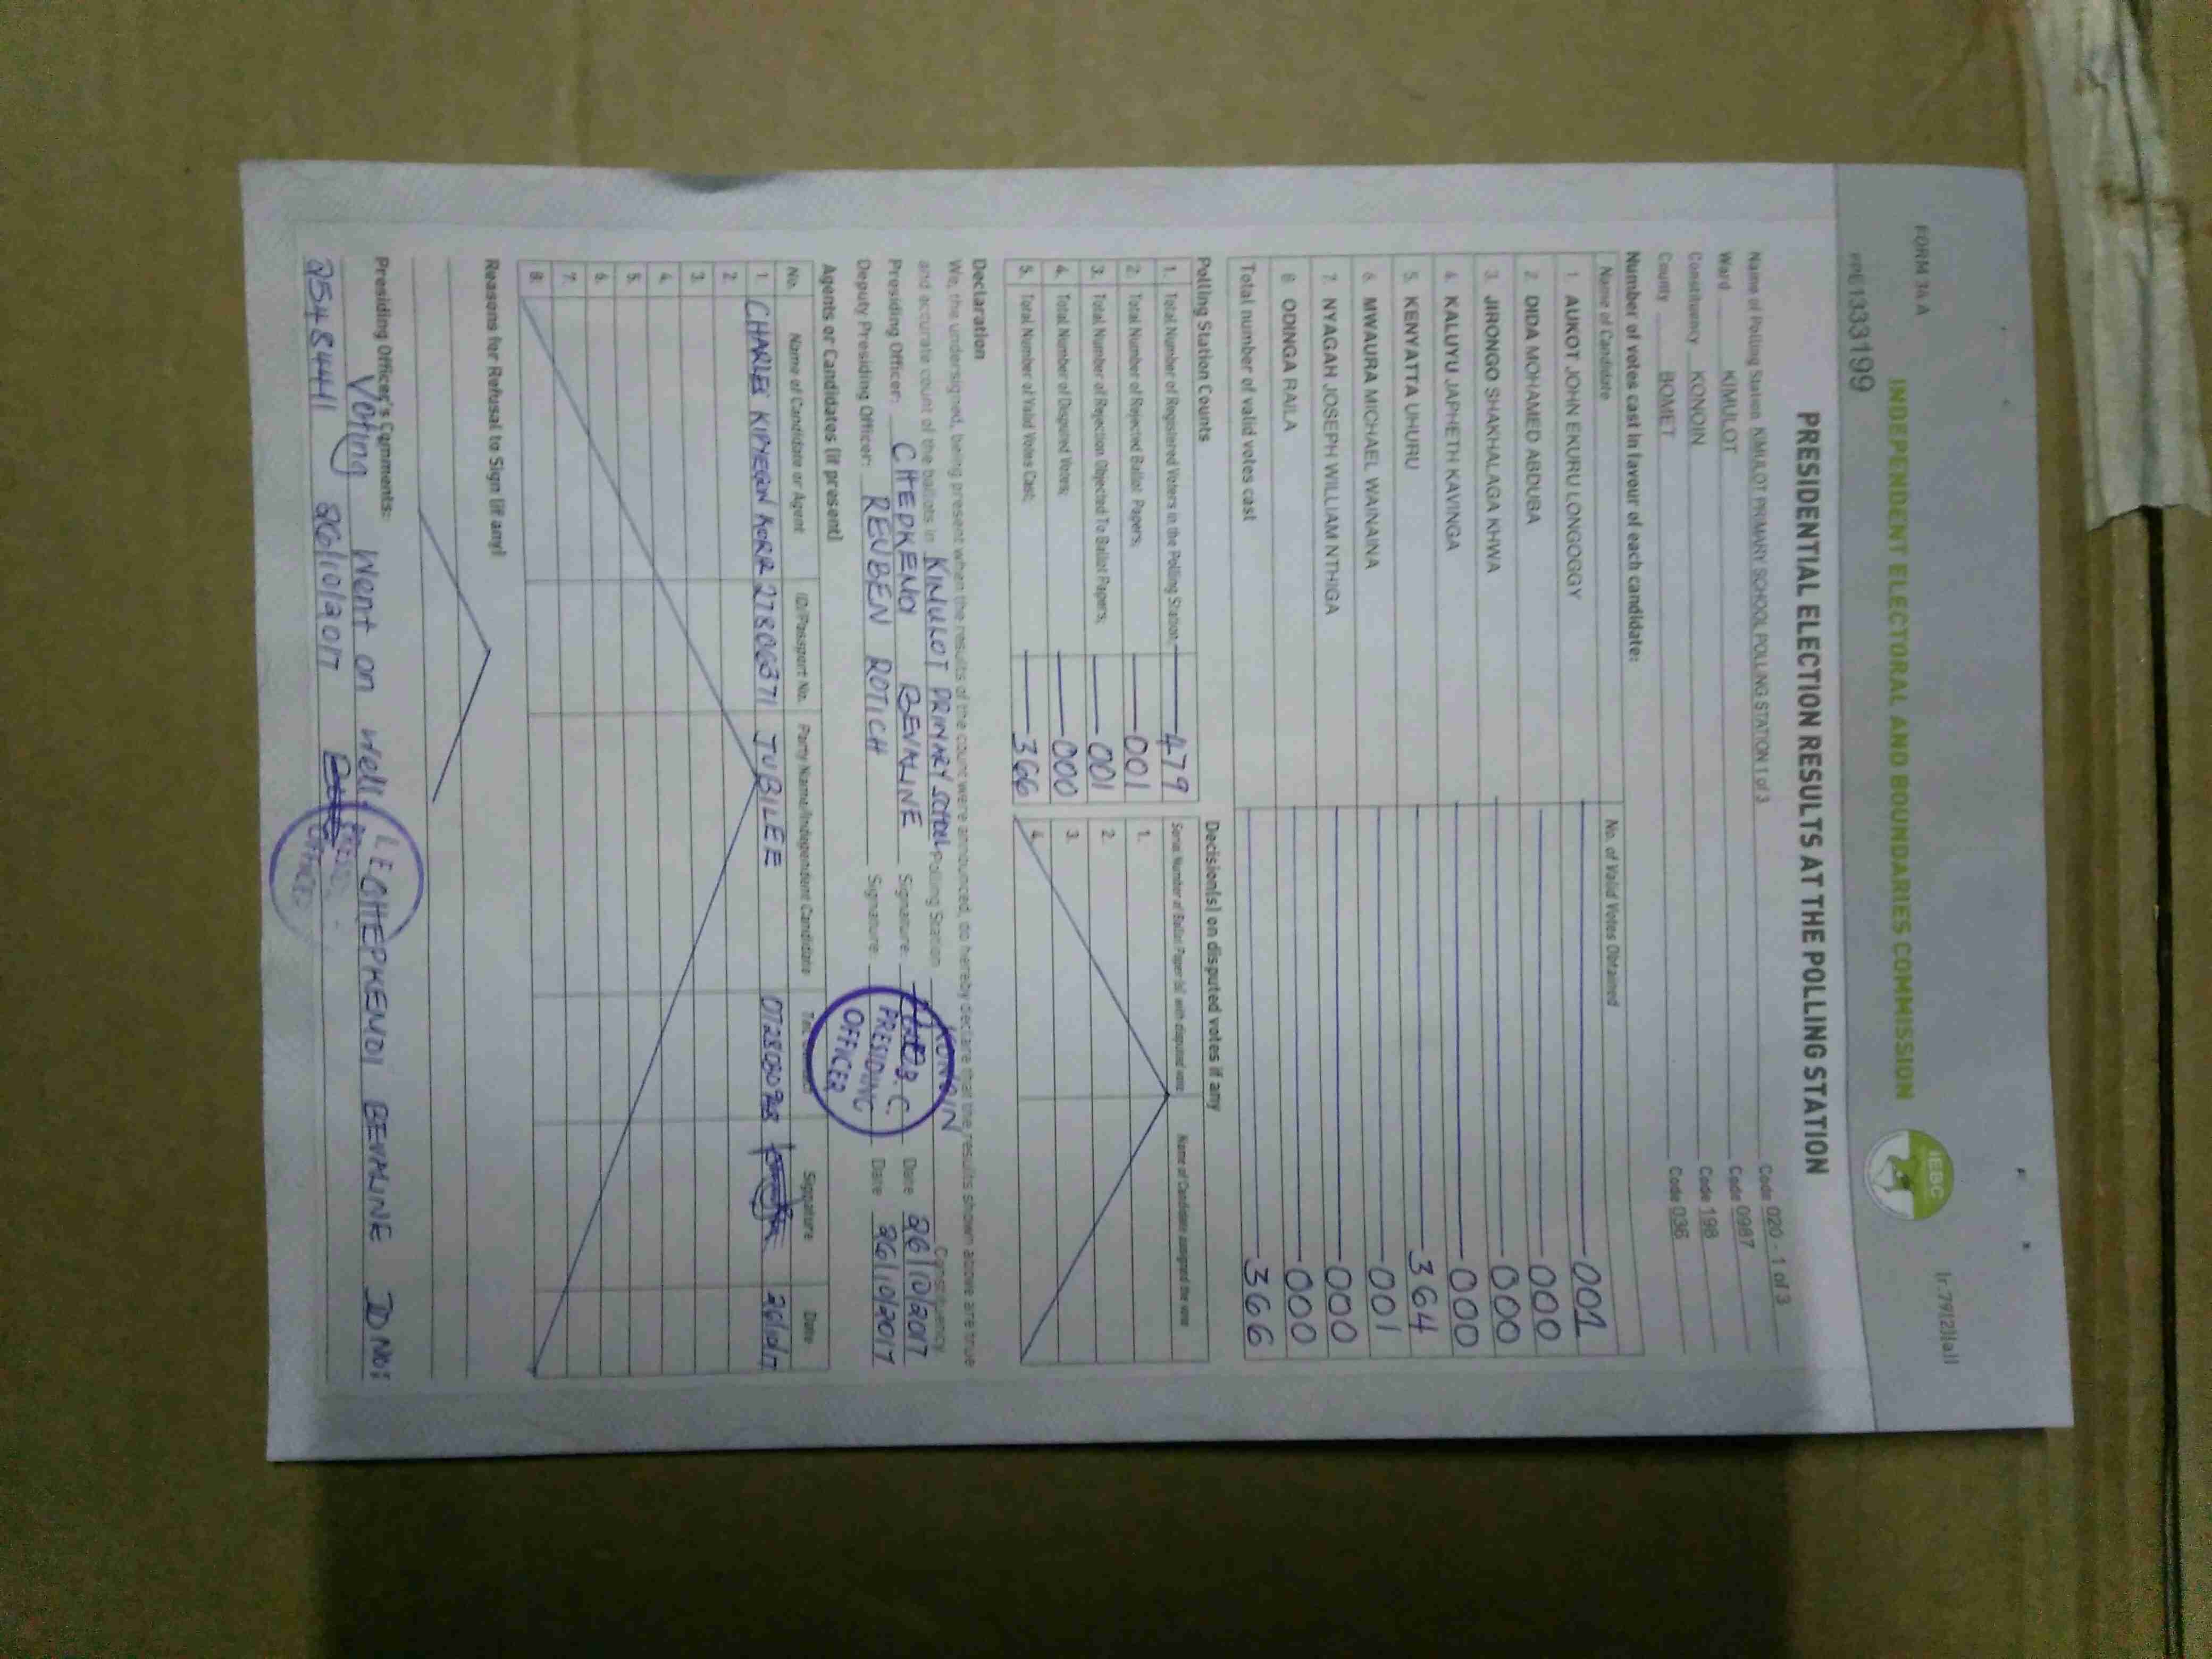 FORM 34A
r.79(2)(a)
INDEPENDENT ELECTORAL AND BOUNDARIES COMMISSION
IEBC
1333199
PRESIDENTIAL ELECTION RESULTS AT THE POLLING STATION
Name of Polling Station KIMULOT PRIMARY SCHOOL POLLING STATION 1 of 3 Code 020 - 1 of 3
Ward KIMULOT Code 0987
Constituency KONOIN Code 198
County BOMET Code 036
Number of votes cast in favour of each candidate:
Name of Candidate No. of Valid Votes Obtained
1. AUKOT JOHN EKURU LONGOGGY 001
2. DIDA MOHAMED ABDUBA 000
3. JIRONGO SHAKHALAGA KHWA 000
4. KALUYU JAPHETH KAVINGA 000
5. KENYATTA UHURU 364
6. MWAURA MICHAEL WAINAINA 001
7. NYAGAH JOSEPH WILLIAM NTHIGA 000
8. ODINGA RAILA 000
Total number of valid votes cast 366
Polling Station Counts
1. Total Number of Registered Voters in the Polling Station; 479
2. Total Number of Rejected Ballot Papers; 001
3. Total Number of Rejection Objected To Ballot Papers; 001
4. Total Number of Disputed Votes; 000
5. Total Number of Valid Votes Cast; 366
Decision(s) on disputed votes if any
Serial Number of Ballot Paper (s) with disputed vote Name of Candidate assigned the vote
1.
2.
3.
4.
Declaration
We, the undersigned, being present when the results of the count were announced, do hereby declare that the results shown above are true
and accurate count of the ballots in KIMULOT PRIMARY SCHOOL Polling Station KONOIN Constituency
Presiding Officer: CHEPKEMOI BEVALINE Signature: Date 26/10/2017
Deputy Presiding Officer: REUBEN ROTICH Signature: Date 26/10/2017
I.E.B.C.
PRESIDING
OFFICER
Agents or Candidates (if present)
No. Name of Candidate or Agent ID/Passport No. Party Name/Independent Candidate Signature Date
1. CHARLES KIPYEGON KORR 27806371 JUBILEE
2.
3.
4.
5.
6.
7.
8.
Reasons for Refusal to Sign (if any)
Presiding Officer's Comments:
Voting Went on well CHEPKEMOI BEVALINE ID NO:
25484441 26/10/2017